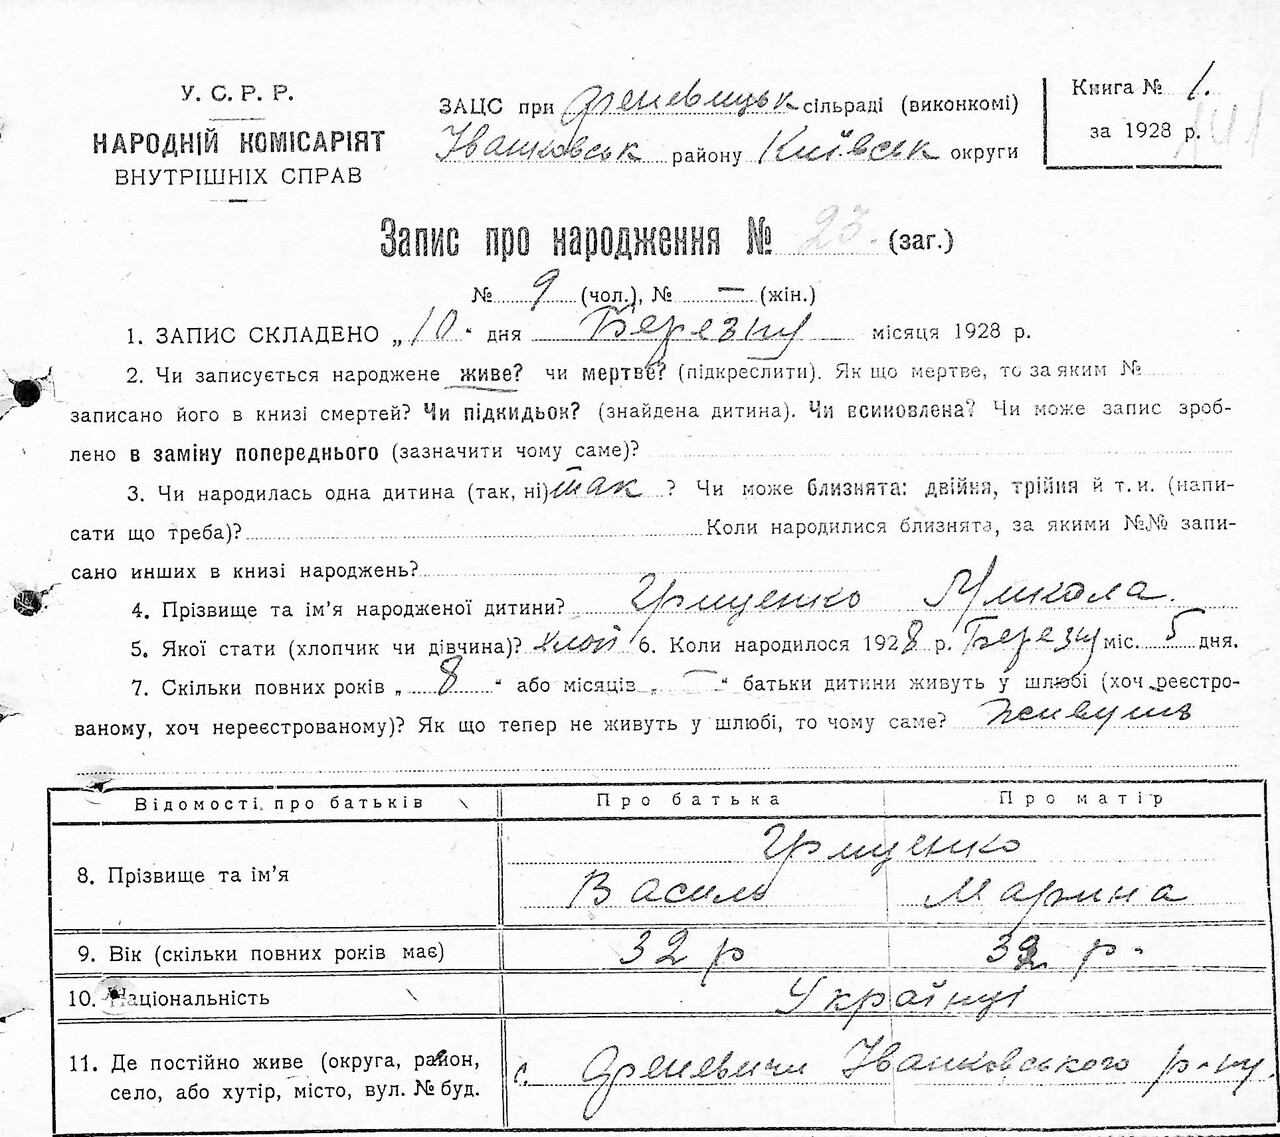 У. С. Р. Р.
НАРОДНІЙ КОМІСАРІЯТ
ВНУТРІШНІХ СПРАВ
ЗАЦС при сільраді (виконкомі)
Іванковськ району Київськ округи
Книга № 1.
за 1928 р.
Запис про народження № 23. (заг.)
№ 9 (чол.), № — (жін.)
1. ЗАПИС СКЛАДЕНО „10“ дня Березну місяця 1928 р.
2. Чи записується народжене живе? чи мертве? (підкреслити). Як що мертве, то за яким №
записано його в книзі смертей? Чи підкидьок? (знайдена дитина). Чи всиновлена? Чи може запис зроб-
лено в заміну попереднього (зазначити чому саме)?
3. Чи народилась одна дитина (так, ні) так ? Чи може близнята: двійня, трійня й т. и. (напи-
сати що треба)? Коли народилися близнята, за якими №№ запи-
сано инших в книзі народжень?
4. Прізвище та ім’я народженої дитини? Грищенко Микола.
5. Якої стати (хлопчик чи дівчина)? хлоп 6. Коли народилося 1928 р. Березну міс. 5 дня.
7. Скільки повних років „ 8 “ або місяців „ — “ батьки дитини живуть у шлюбі (хоч реєстро-
ваному, хоч нереєстрованому)? Як що тепер не живуть у шлюбі, то чому саме? Живуть
Відомості про батьків Про батька Про матір
8. Прізвище та ім’я Грищенко
Василь Марина
9. Вік (скільки повних років має) 32 р 32 р.
10. Національність Українці
11. Де постійно живе (округа, район,
село, або хутір, місто, вул. № буд.
с. Іванковського р-ну